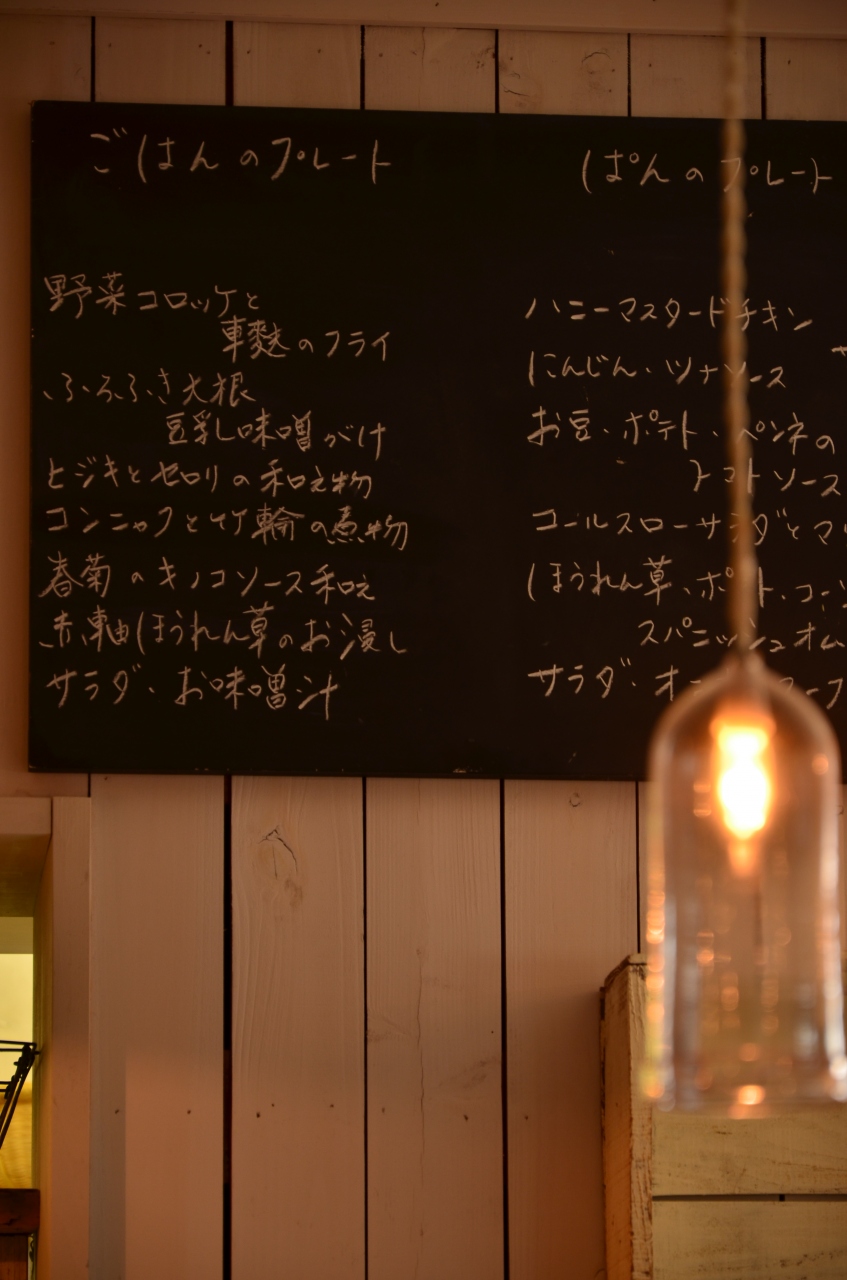 ごはんのプレート
野菜コロッケと
車麩のフライ
ふろふき大根
豆乳味噌がけ
ヒジキとセロリの和え物
コンニャクと竹輪の煮物
春菊のキノコソース和え
赤軸ほうれん草のお浸し
サラダ・お味噌汁
ぱんのプレート
ハニーマスタードチキン
にんじん・ツナソース
お豆・ポテト・ペンネの
トマトソース
コールスローサラダとマ
ほうれん草、ポテト、コーン
スパニッシュオム
サラダ・オ